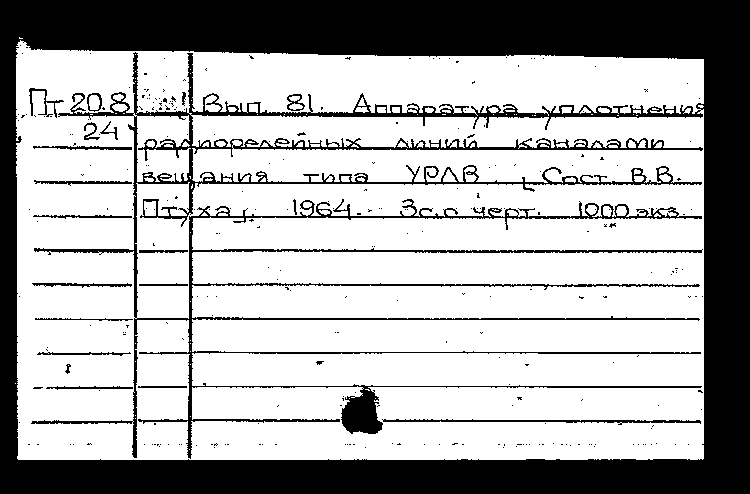 Пт 20.8 Вып. 81. Аппаратура уплотнения
24 радиорелейных линий каналами
вещания типа УРЛВ. [Сост. В.В.
Птуха]. 1964. 3с.с черт. 1000 экз.